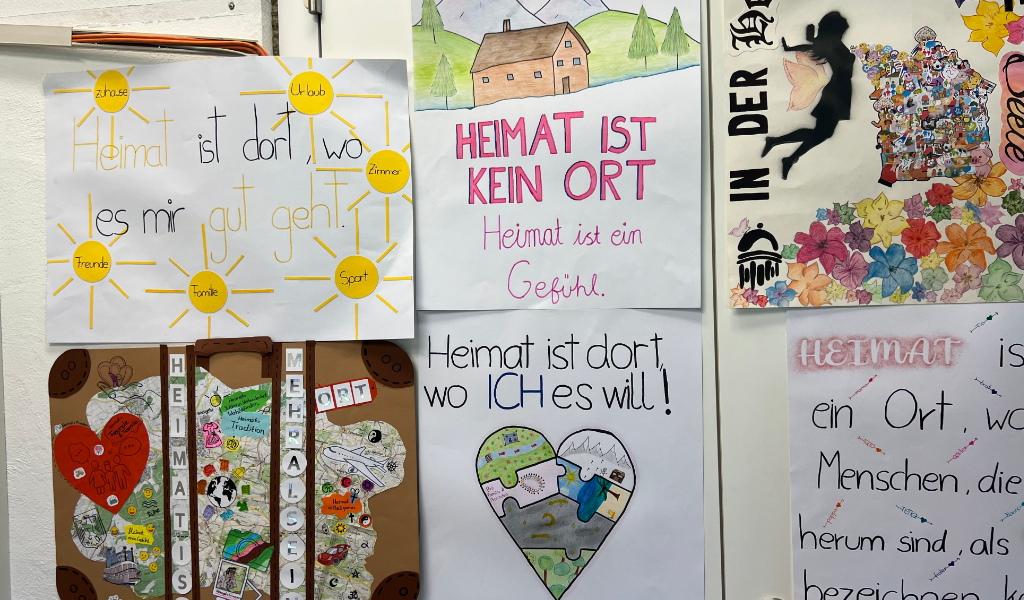 zuhause
Urlaub
Heimat ist dort, wo
Zimmer
es mir gut geht.
Freunde
Familie
Sport
HEIMAT IST
KEIN ORT
Heimat ist ein
Gefühl.
IN DER
Heimat ist dort,
wo ICH es will!
HEIMAT IS
MEHR ALS EI
ORT
Tradition
HEIMAT is
ein Ort, wo
Menschen, die
herum sind, als
bezeichnen